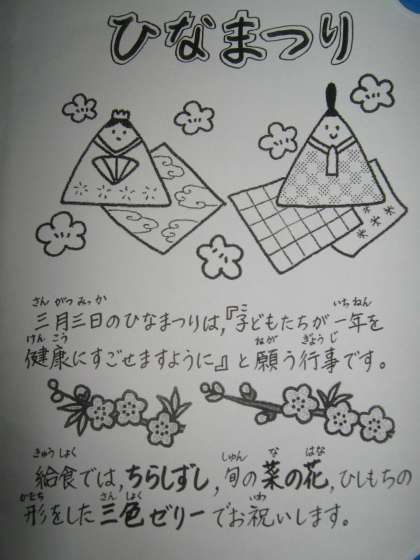 ひなまつり
さん がつ みっ か いち ねん
三月三日のひなまつりは,『子どもたちが一年を
けん こう ねが ぎょう じ
健康にすごせますように』と願う行事です。
きゅう しょく しゅん な はな
給食では,ちらしずし,旬の菜の花,ひしもちの
かたち さん しょく いわ
形をした三色ゼリーでお祝いします。